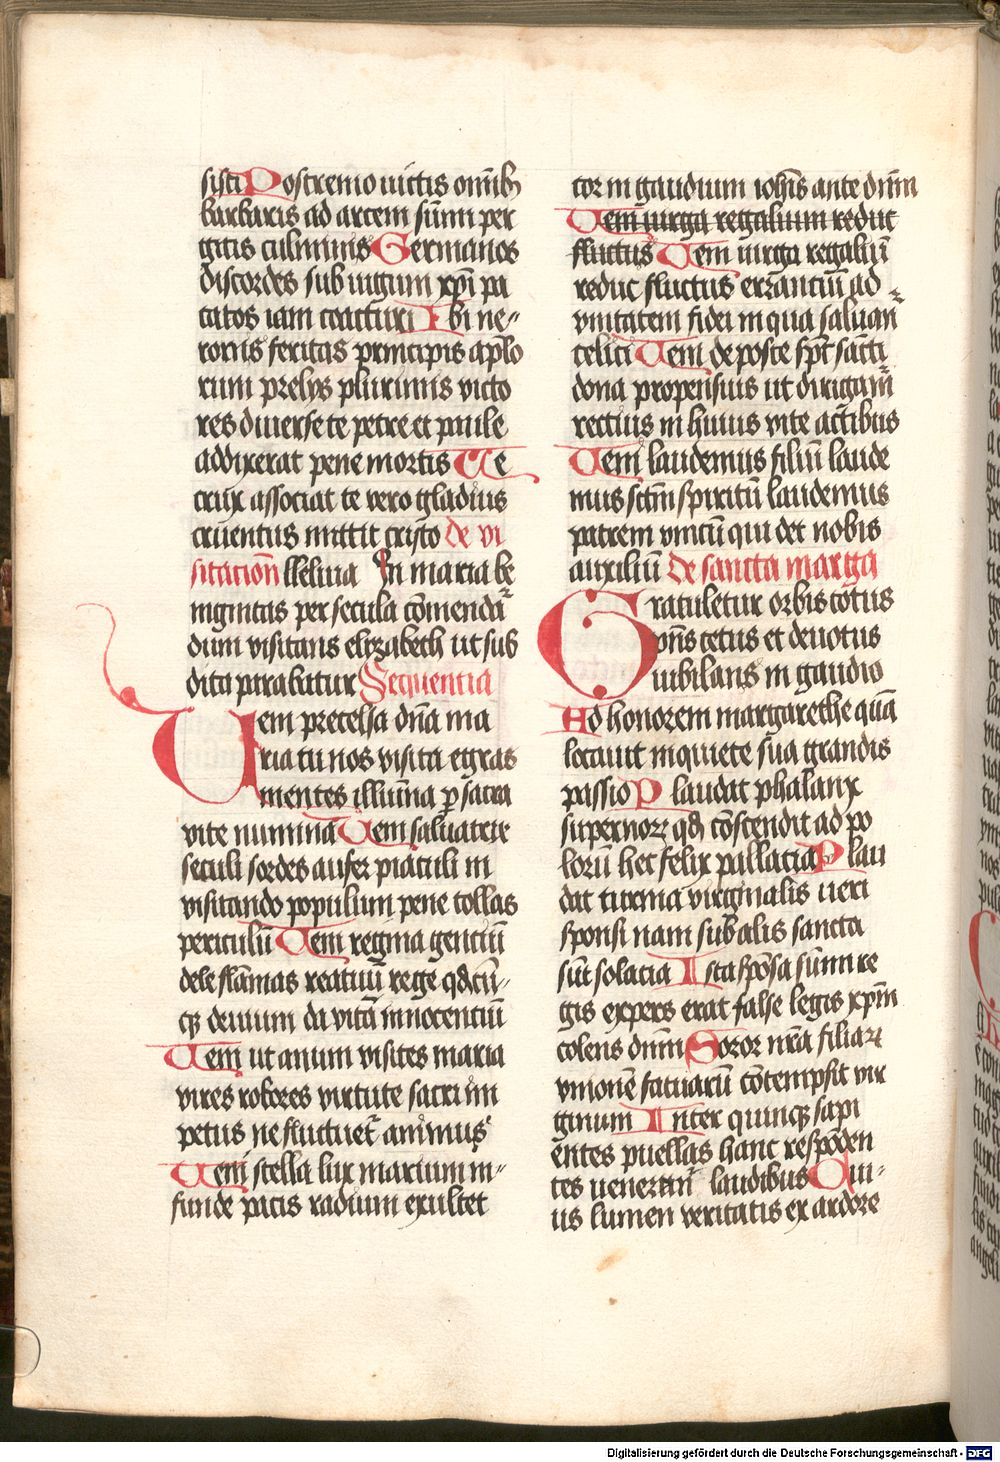 sisti Postremo uictis om̄ib9
barbaris ad arcem sūmi per
gitis culminis Germanos
discordes sub iugum xp̄i pa
catos iam coacturi Ibi ne-
ronis feritas principis ap̄lo
rum prelijs plurimis victo
res diuerse te petre et paule
addixerat pene mortis Te
crux associat te vero gladius
cruentus mittit cristo de vi
sitacion̄ lleluia In maria be
nignitas per secula cōmendā
dum visitans elizabeth ut sub
dita parabatur Sequentia
Veni precelsa dn̄a ma
ria tu nos visita egras
mentes illūina p sacra
vite numina Veni saluatrix
seculi sordes aufer piaculi in
visitando populum pene tollas
periculū Veni regina gentiū
dele flāmas reatuū rege qdcū-
qz deuium da vitā innocentiū
Veni ut anum visites maria
vires robores virtute sacri im
petus ne fluctuet animus
Veni stella lux marium in-
funde pacis radium exultet
cor in gaudium ioh̄is ante dn̄m
Veni uirga regalium reduc
fluctus Veni uirga regaliū
reduc fluctus errantiū ad
vnitatem fidei in qua saluan
celici Veni deposce sp̄t sancti
dona propensius ut dirigam̄
rectius in huius vite actibus
Veni laudemus filiū laude
mus sctm̄ spiritū laudemus
patrem vnicū qui det nobis
auxiliū De sancta marga
Gratuletur orbis totus
ppn̄s cetus et deuotus
iubilans in gaudio
Ad honorem margarethe quā
locauit in quiete sua grandis
passio Plaudat phalanx
supernorz qd cōscendit ad po
lorū hec felix pallacia Plau
dat turma virginalis ueri
sponsi nam sub alis sancta
sūt solacia Ista spōsa sūmi re
gis expers erat false legis xp̄m
colens dn̄m Soror nr̄a filiarz
vnionē fatuarū cōtempsit vir
ginum Inter quinqz sapi
entes puellas hanc respōden
tes uenerem̄ laudibus Cui-
us lumen veritatis ex ardore
Digitalisierung gefördert durch die Deutsche Forschungsgemeinschaft - DFG